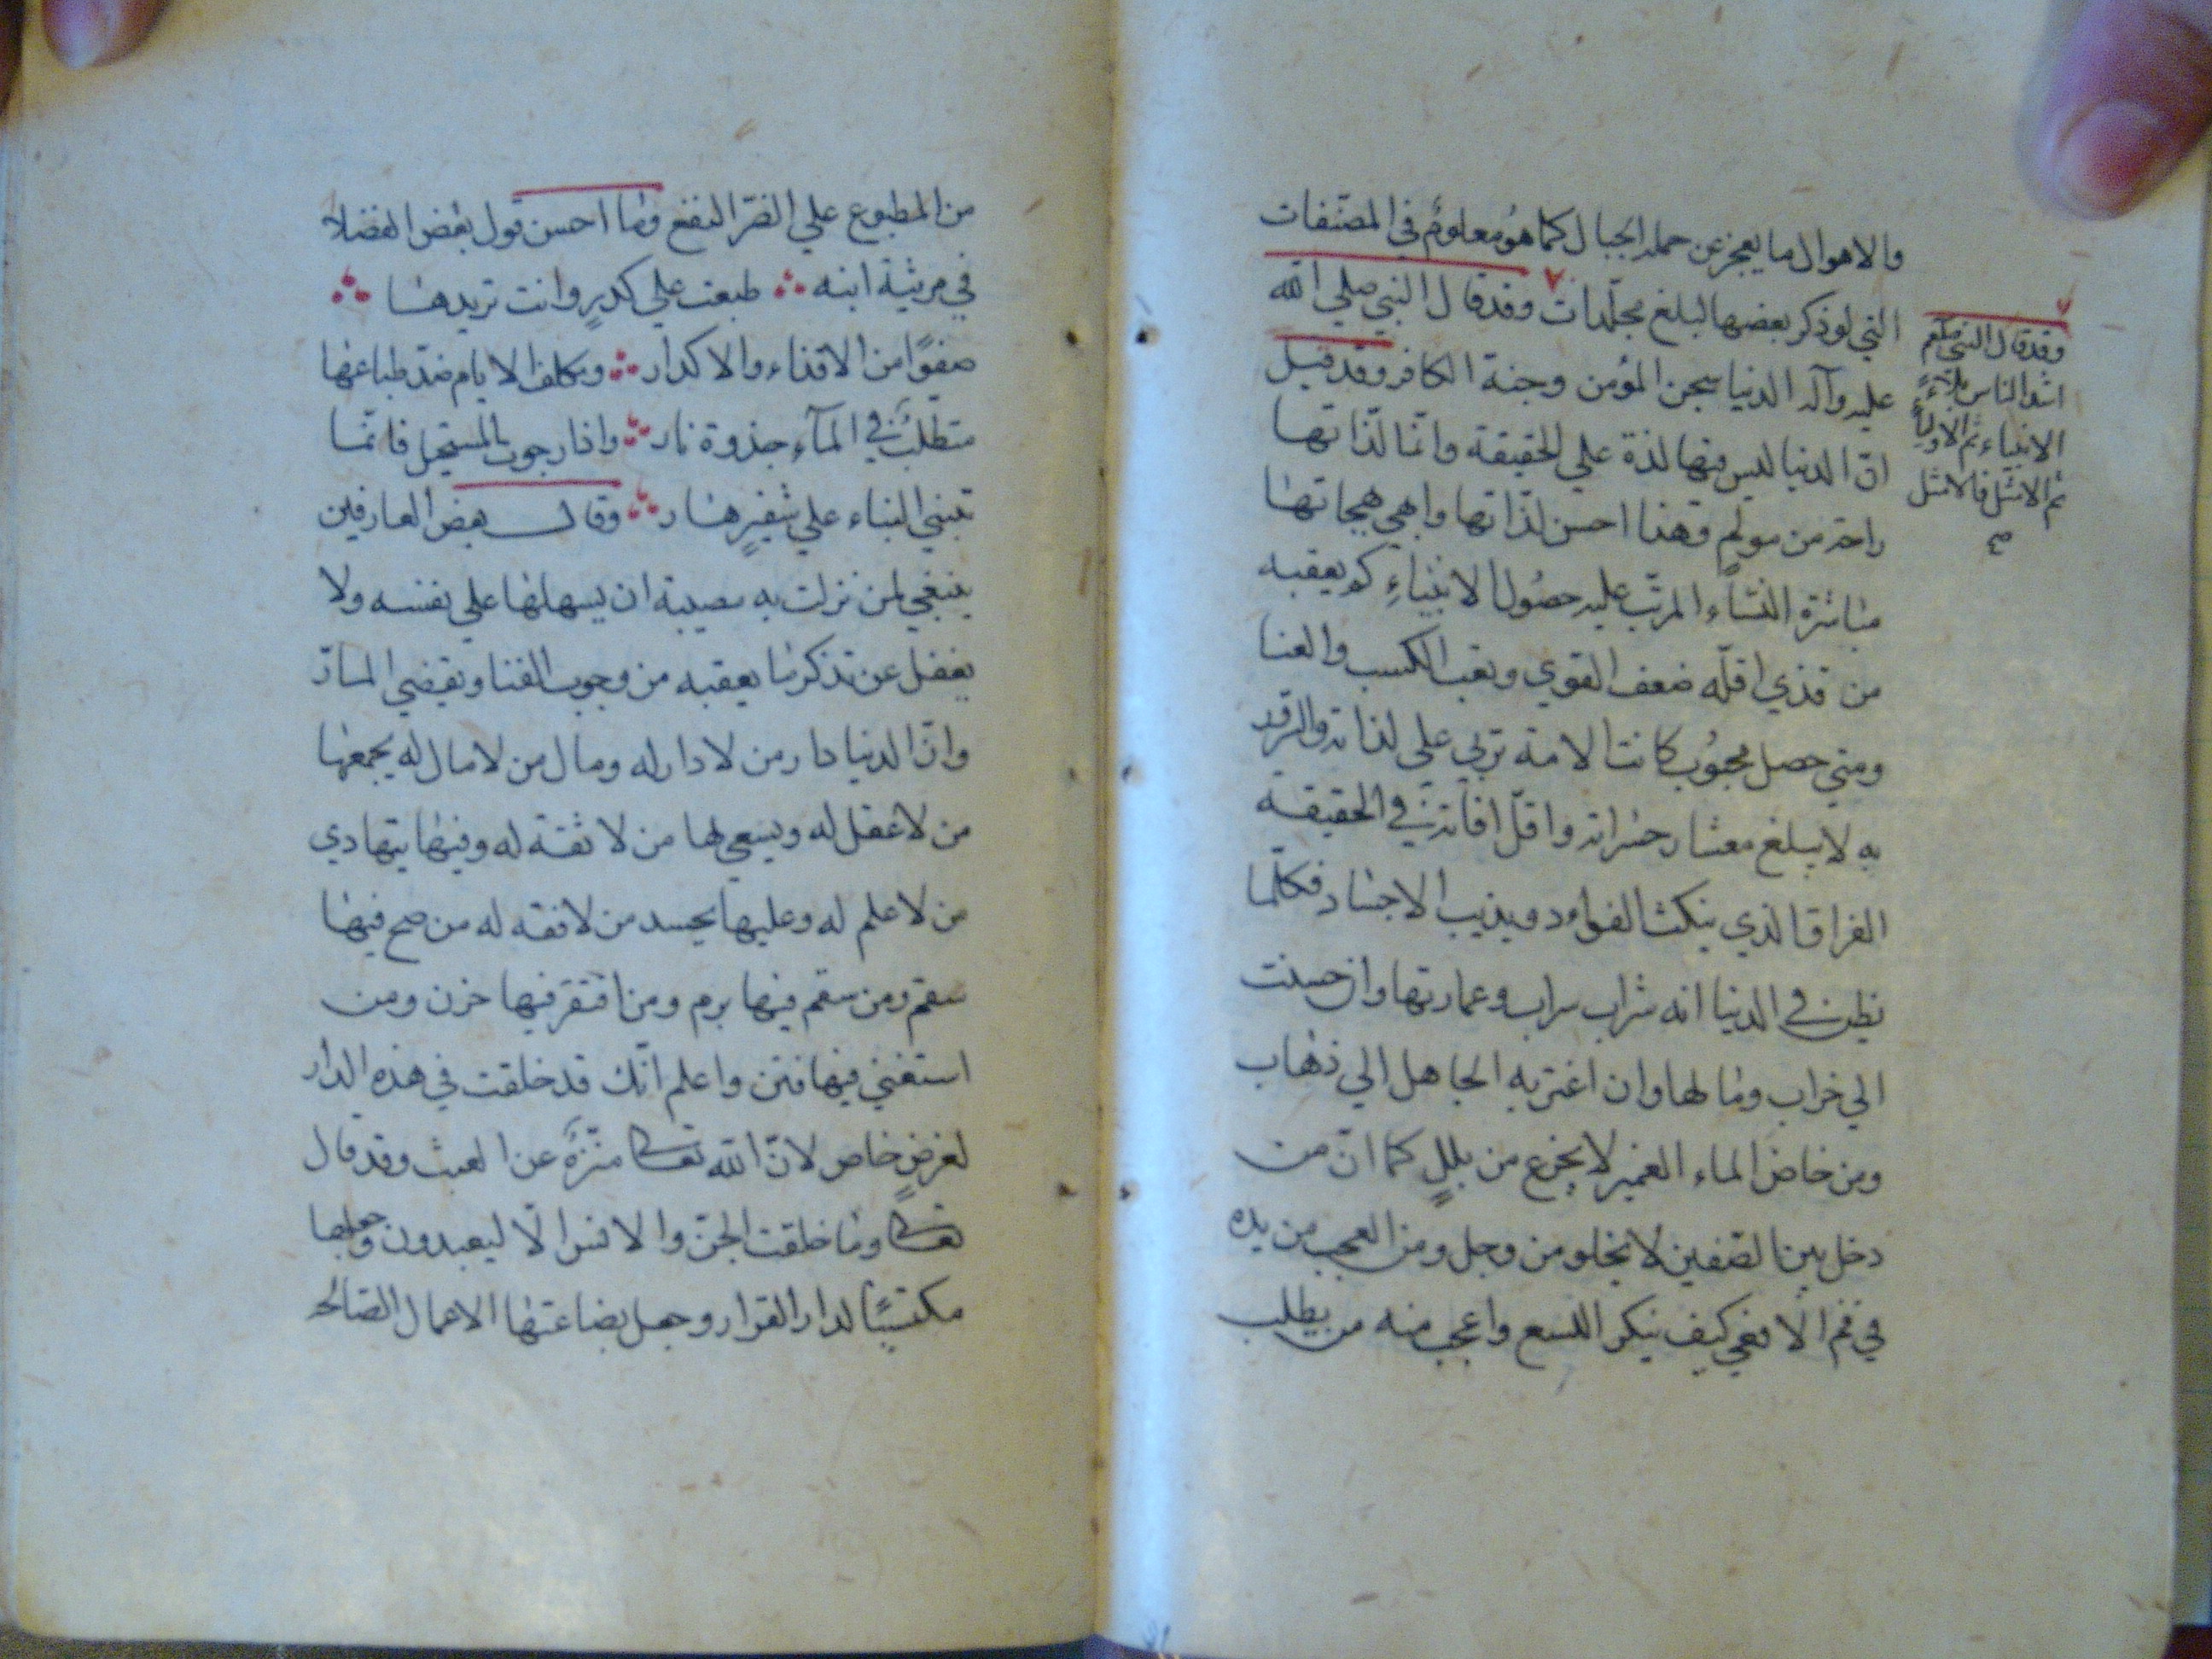 والاهوال ما يعجز عن حمله الجبال كما هو معلوم في المصنفات
التي لو ذكر بعضها لبلغ مجلّدات وقد قال النبي صلي الله
عليه وآله الدنيا سجن المؤمن وجنة الكافر وقد قيل
انّ الدنيا ليس فيها لذة علي الحقيقة وانّما لذّاتها
راحة من مولم وهذا احسن لذّاتها وابهي بهجاتها
مباشرة النساء المرتّب عليه حصول الابناءِ كم يعقبه
من قذي اقلّه ضعف القوي وتعب الكسب والعنا
ومتي حصل محبوب كانت الامه تربي علي لذاته والسرور
به لا يبلغ معشار حسراته واقلّ افاته في الحقيقة
الفراق الذي ينكث الفواد ويذيب الاجساد فكلّما
يظن في الدنيا انه شراب سراب وعمارتها وان حسنت
الي خراب ومالها وان اغتر به الجاهل الي ذهاب
ومن خاض الماء الغمير لا يجزع من بللٍ كما انّ من
دخل بين الصّفين لا يخلو من وجل ومن العجب من يده
في فم الافعي كيف ينكر اللسع واعجب منه من يطلب
وقد قال النبي صلعم
اشد الناس بلاءً
الانبياء ثم الاوليا
ثم الامثل فالامثل
صح
من المطبوع علي الضرّ النفع وما احسن قول بعض الفضلا
في مرثية ابنه طبعت علي كدرٍ وانت تريدها
صفوًا من الاقذاء والاكدار ومكلف الايام ضدّ طباعها
متطلبٌ في المآء جذوة نار واذا رجوت المستحيل فانّما
تبني البناء علي شفيرٍ هار وقال بعض العارفين
ينبغي لمن نزلت به مصيبة ان يسهلها علي نفسه ولا
يغفل عن تذكر ما يعقبه من وجوب الفنا وتقضي المسارّ
وانّ الدنيا دار من لا دار له ومال من لا مال له يجمعها
من لا عقل له ويسعي لها من لا ثقة له وفيها يتهادي
من لا علم له وعليها يحسد من لا فقه له من صح فيها
سقم ومن سقم فيها برم ومن افتقر فيها حزن ومن
استغني فيها فتن واعلم انّك قد خلقت في هذه الدار
لغرضٍ خاص لانّ الله تعالى منزّهٌ عن العبث وقد قال
تعالى وما خلقت الجنّ والانس الّا ليعبدون وجعلها
مكتسبًا لدار القرار وجعل بضاعتها الاعمال الصّالحة